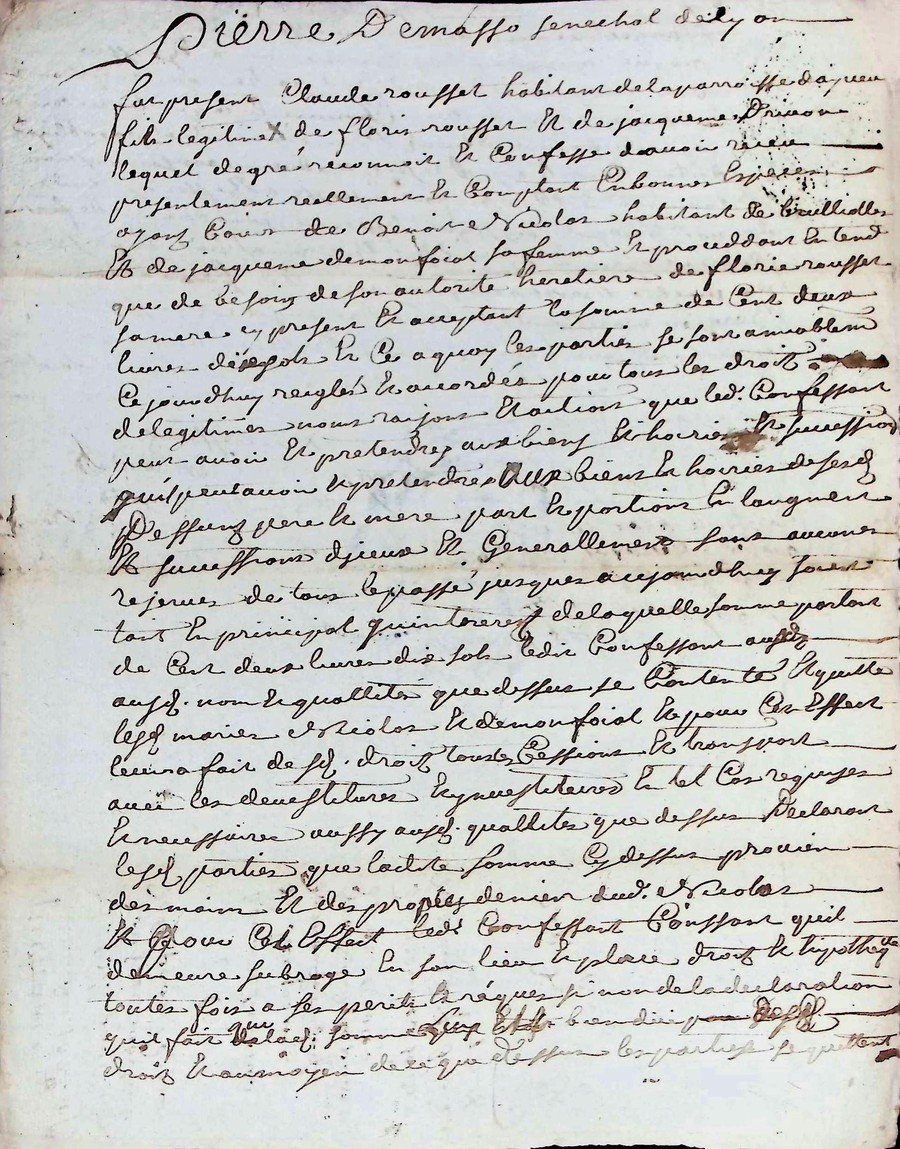 Pierre Demasso senechal de lyon
fut present Claude rousset habitant de la parroisse daveu
fils legitime de floris rousset Et de jacqueme Drivon
lequel de gré reconnoit Et Confesse davoir receu
presentement reellement Et Comptant En bonnes Especes
ayant Cours de Benoit Nicolas habitant de
Et de jacqueme demonfoiat sa femme Et proceddant En tend
que de besoing de son autorité heretiere de florie rousset
sa mere cy present Et acceptant la somme de Cent deux
livres dix sols Et Ce a quoy les parties se sont aimablem
Ce jourdhuy reiglés Et accordés pour tous les droit
de legitimes noms raisons Et actions que led. Confessant
peut avoir Et pretendre aux biens Et hoiries Et succession
qui peut avoir Et pretendre aux biens Et hoiries de sesd
Deffunq pere Et mere part Et portions En laugment
Et successions dyieux Et Generallement sans aucunes
reserves de tous le passé jusques aujourdhuy soient
tant En principal quinterest de laquelle somme portant
de Cent deux livres dix sols ledit Confessant ausd
ausd. nom Et quallites que dessus se Contente Et quitte
lesd maries Nicolas Et demonfoiat Et pour Cet Effect
leur a fait de sd. droit toutes Cessions Et transport
avec les devestitures Et ynvestitures En tel Cas requises
Et necessaires aussy ausd. quallites que dessus Declarant
lesd parties que ladite somme Cy dessus provien
des main Et des propres denier dud. Nicolas
Et pour Cet Effect led. Confessant Conssant quil
demeure subroge En son lieu Et place droit Et hypotheque
toutes fois a ses perils Et risques si non de la declaration
quil fait que lad. somme luy Est bien due
droit Et au moyen de ce que dessus les parties se quittent